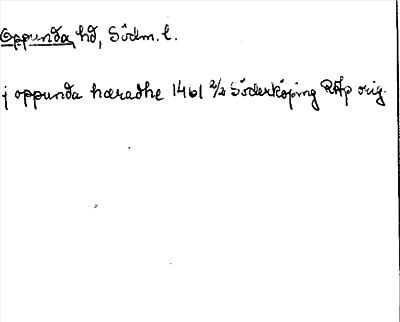 Oppunda hd, Södm. l.
j oppunda hæradhe 1461 2/2 Söderköping RAp orig.